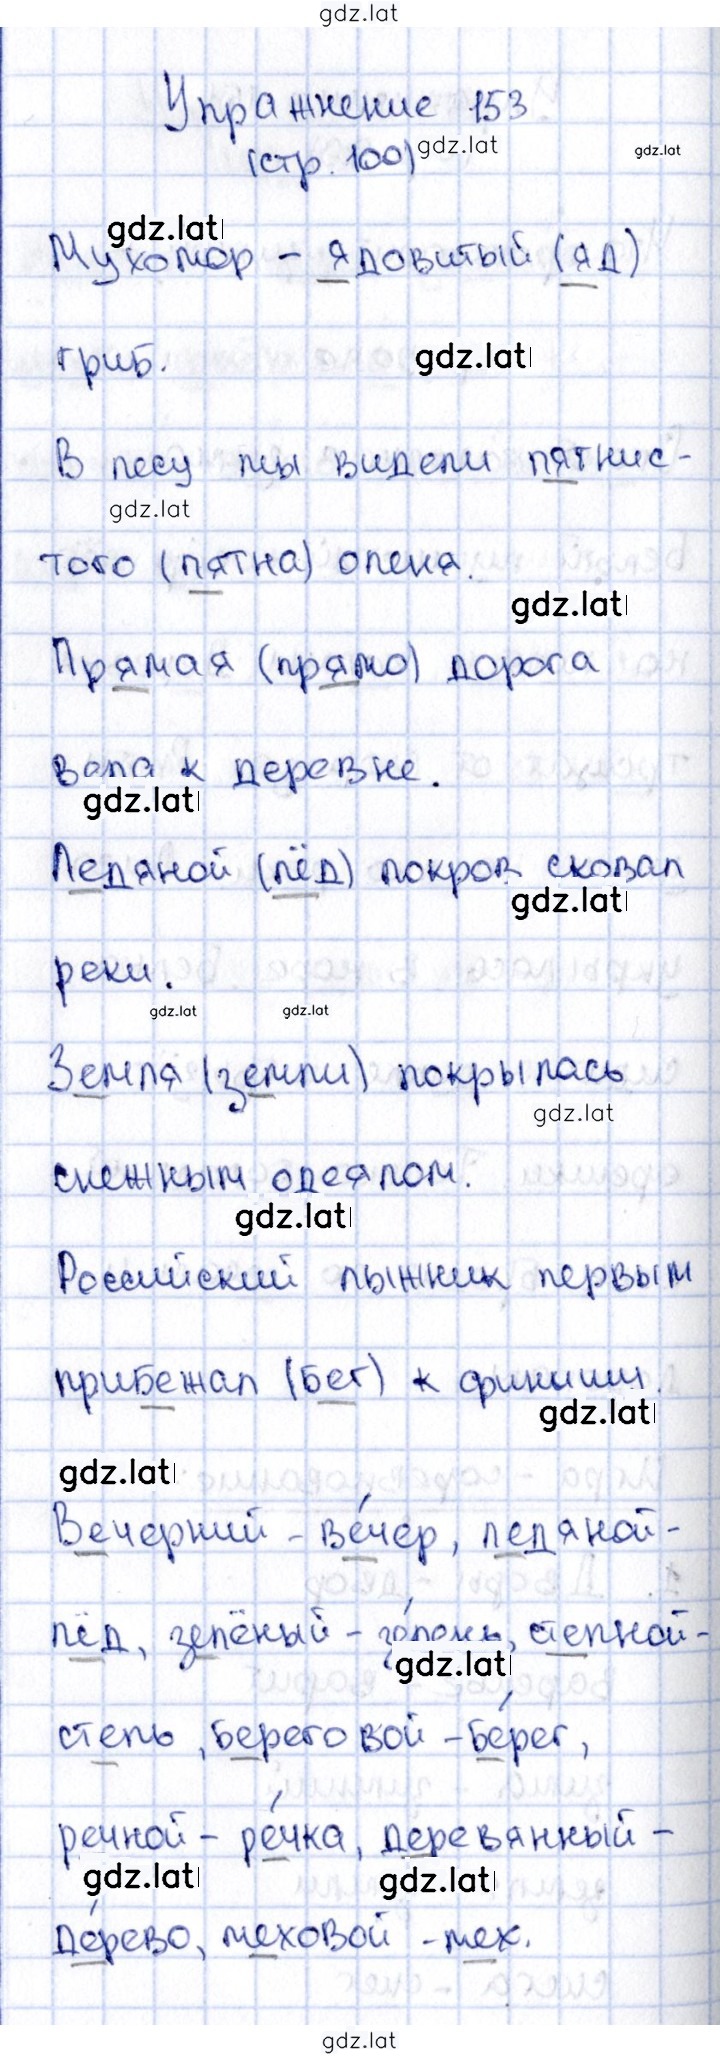 gdz.lat
Упражнение 153
(стр. 100) gdz.lat gdz.lat
gdz.lat
Мухомор - ядовитый (яд)
гриб. gdz.lat
В лесу мы видели пятнис-
gdz.lat
того (пятна) оленя.
gdz.lat
Прямая (прямо) дорога
вела к деревне.
gdz.lat
Ледяной (лёд) покров сковал
gdz.lat
реки.
gdz.lat gdz.lat
Земля (земли) покрылась
gdz.lat
снежным одеялом.
gdz.lat
Российский лыжник первым
прибежал (бег) к финишу.
gdz.lat
gdz.lat
Вечерний - ве́чер, ледяной -
лёд, зелёный - зе́лень, степной -
gdz.lat
степь, береговой - бе́рег,
речной - ре́чка, деревянный -
gdz.lat gdz.lat
де́рево, меховой - мех.
gdz.lat